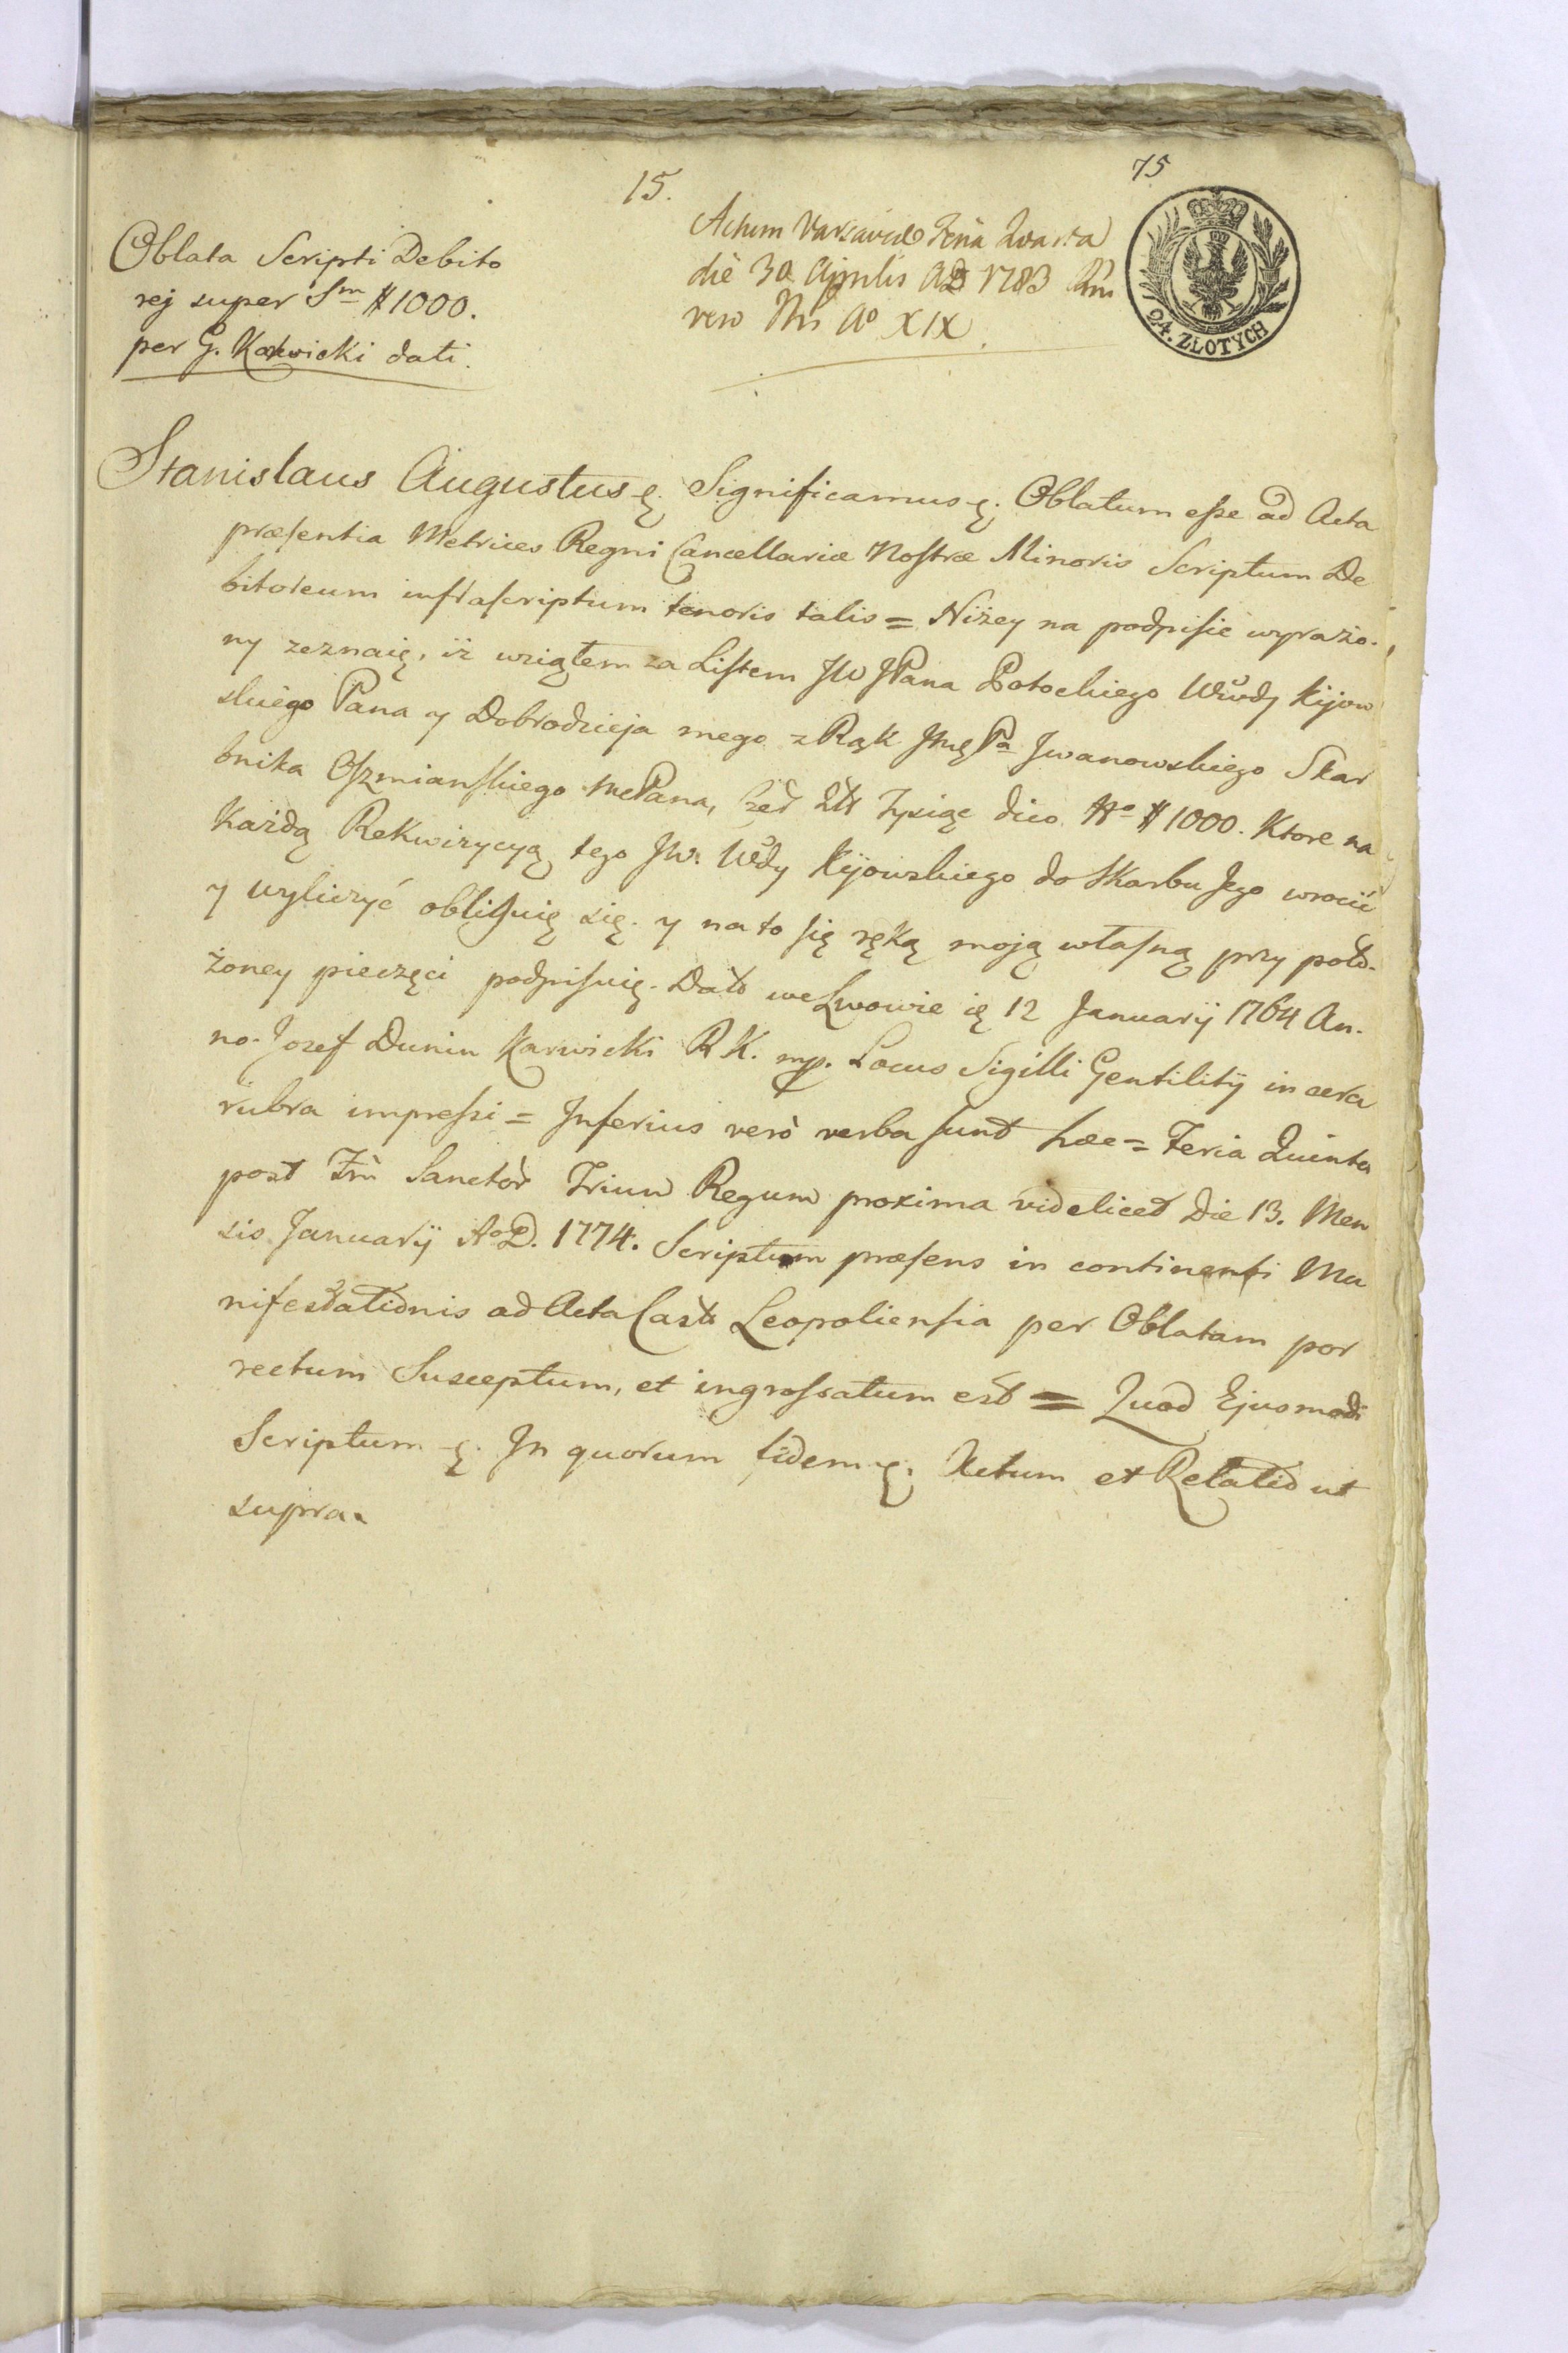 15.
75
Oblata Scripti Debito
rej super Sm # 1000.
per G. Karwicki dati.
Actum Varsaviæ Feria Quarta
die 30 Aprilis AD 1783 Rni
vero Nri Ao XIX.
24. ZŁOTYCH
Stanislaus Augustus ę. Significamus ę. Oblatum eſse ad Acta
præſentia Metrices Regni Cancellariæ Noſtræ Minoris Scriptum De
bitoreum infraſcriptum tenoris talis = Niżey na podpiſie wyrażo-
ny zeznaię, iż wziąłem za Liſtem JW JPana Potockiego Wwdy Kijow
skiego Pana y Dobrodzieja mego z Rąk Jmę Pa Jwanowskiego Skar
bnika Oſzmianſkiego mePana, Tysiąc dico No # 1000. Ktore na
Każdą Rekwizycyą tego JW. Wdy Kijowskiego do Skarbu Jego wrocić
y wyliczyć obliguię się. y na to ſię ręką moją właſną przy poło-
żoney pieczęci podpiſuię. Datt we Lwowie 12 Januarij 1764 An-
no. Jozef Dunin Karwicki R K. mp. Locus Sigilli Gentilitij in cera
rubra impreſsi = Inferius verò verba ſunt hæc = Feria Quinta
post Fm Sanctor Trium Regum proxima videlicet Die 13. Men
sis Januarij AoD. 1774. Scriptum præſens in continenti Ma
nifestationis ad Acta Castr Leopolienſia per Oblatam por
rectum Susceptum, et ingroſsatum est = Quod Ejusmodi
Scriptum ę. In quorum fidem ę. Actum et Relatio ut
supra.